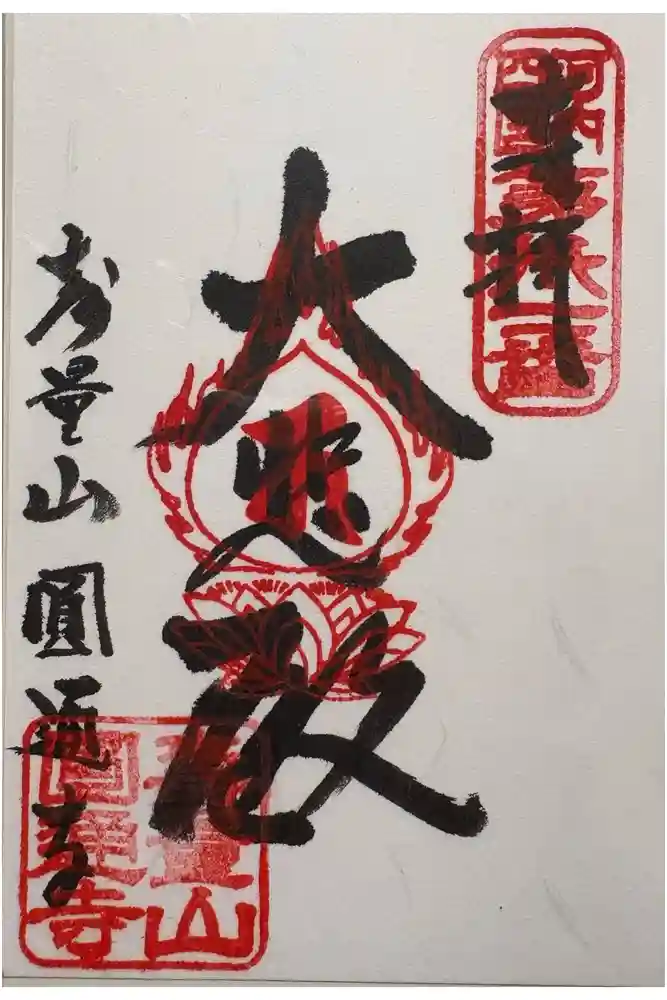 奉拝
大悲殿
寿量山 圓通寺
壽量山
圓通寺